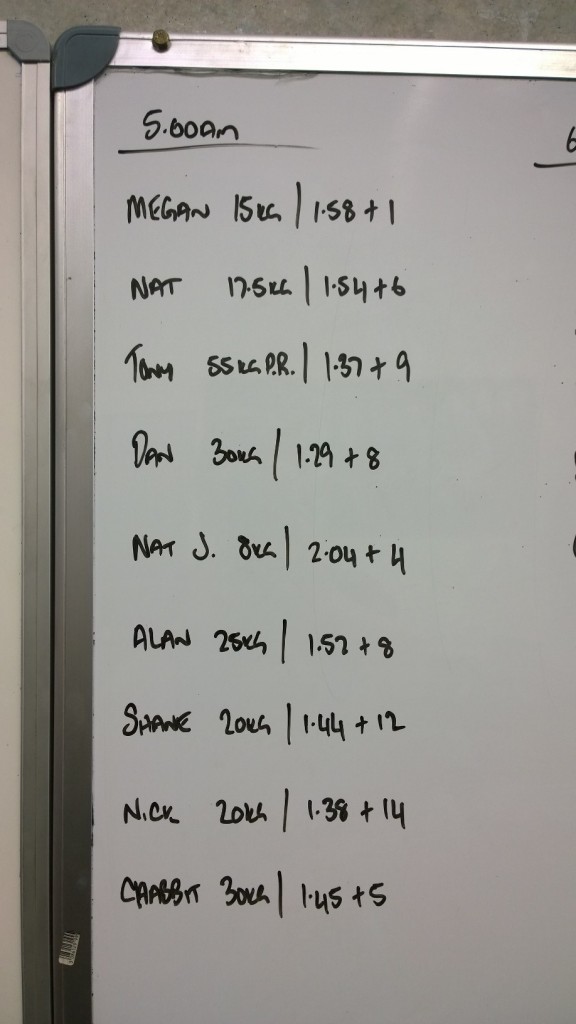 5.00AM
6
MEGAN 15KG | 1.58 + 1
NAT 17.5KG | 1.54 + 6
TONY 55KG P.R. | 1.37 + 9
DAN 30KG | 1.29 + 8
NAT J. 8KG | 2.04 + 4
ALAN 25KG | 1.57 + 8
SHANE 20KG | 1.44 + 12
NICK 20KG | 1.38 + 14
CHABBIT 30KG | 1.45 + 5